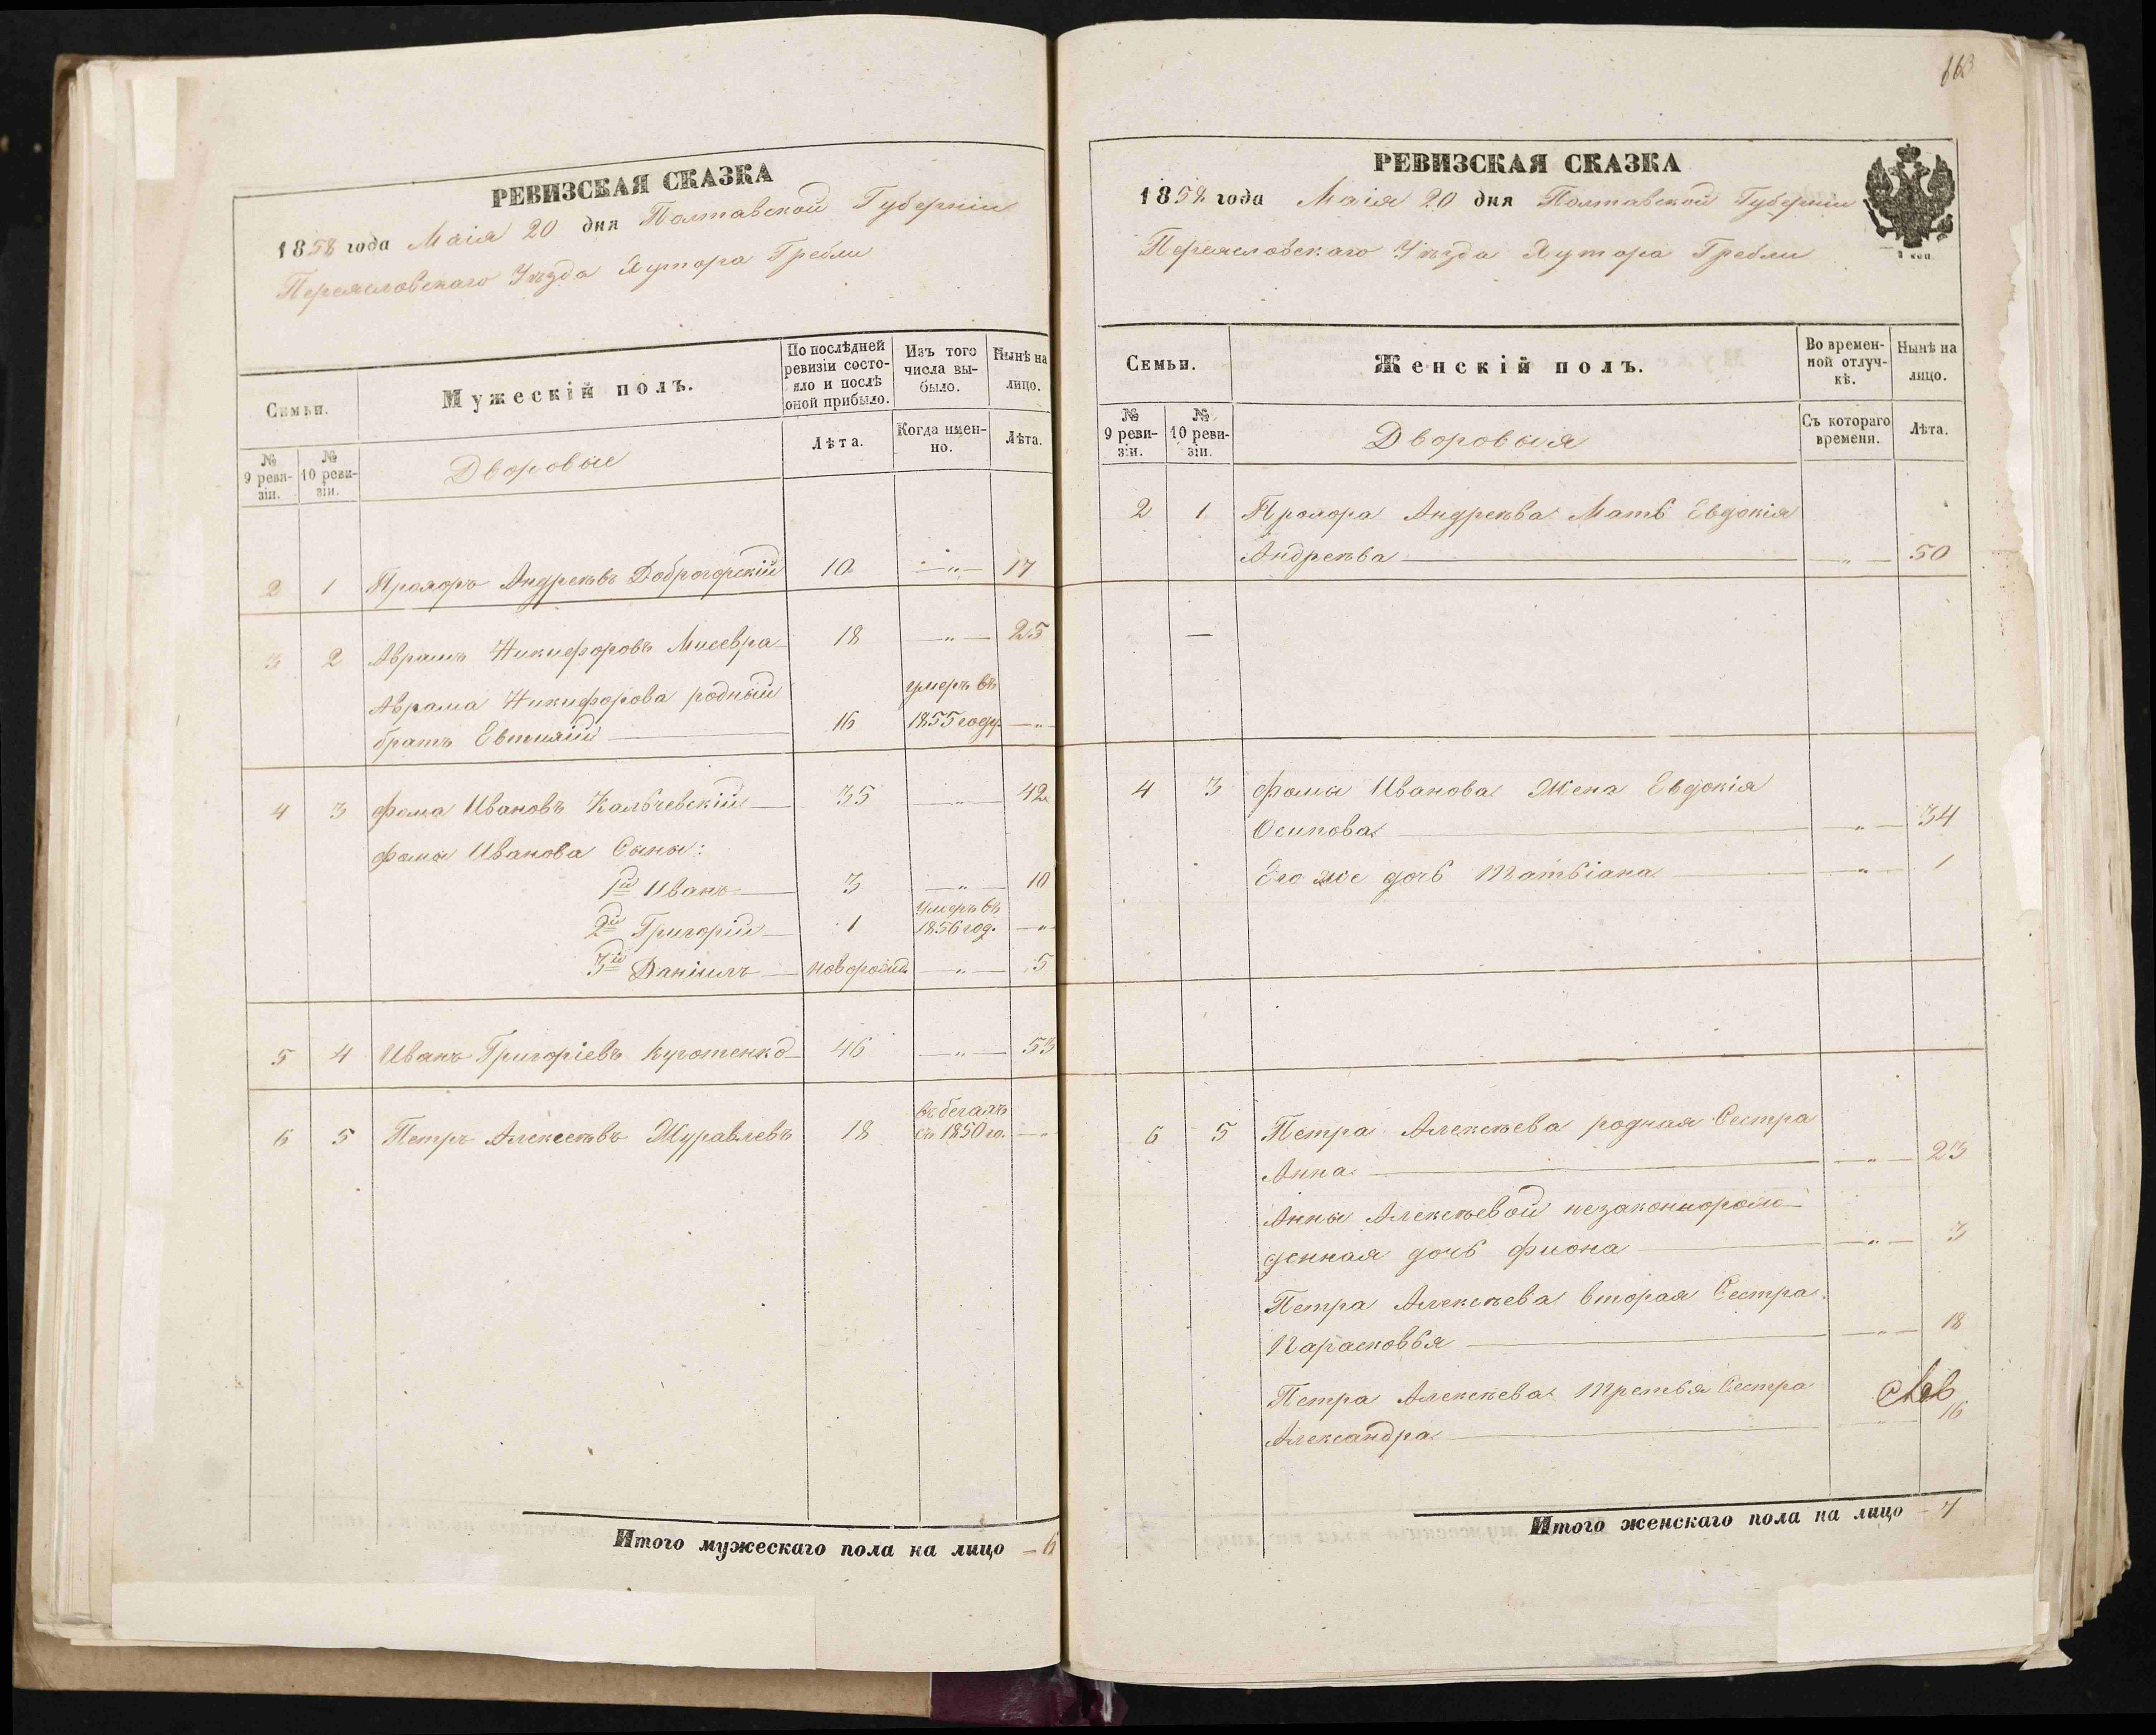 РЕВИЗСКАЯ СКАЗКА
1858 года Маія 20 дня Полтавской Губерніи
Переясловскаго Уѣзда Хутора Гребли
Семьи.
Мужескій полъ.
По послѣдней ревизіи состояло и послѣ оной прибыло.
Изъ того числа выбыло.
Нынѣ на лицо.
№ 9 ревизіи.
№ 10 ревизіи.
Дворовые
Лѣта.
Когда именно.
Лѣта.
2 1 Прохоръ Андреевъ Доброгорскій 10 —„— 17
3 2 Аврамъ Никифоровъ 18 —„— 25
Аврама Никифорова родный умеръ въ
братъ Евтихій — 16 1855 году —„
4 3 Фома Ивановъ Кальчевскій — 35 —„— 42
Фомы Иванова Сыны:
1й Иванъ — 3 —„— 10
умеръ въ
2й Григорій — 1 1856 год. —„
3й Даніилъ — новорожд. —„— 5
5 4 Иванъ Григоріевъ 46 —„— 53
въ бегахъ
6 5 Петръ Алексѣевъ Журавлевъ 18 съ 1850 го. —„
Итого мужескаго пола на лицо – 6
163
РЕВИЗСКАЯ СКАЗКА
1858 года Маія 20 дня Полтавской Губерніи
2 коп
Переясловскаго Уѣзда Хутора Гребли
Семьи.
Женскій полъ.
Во временной отлучкѣ.
Нынѣ на лицо.
№ 9 ревизіи.
№ 10 ревизіи.
Дворовыя
Съ котораго времени.
Лѣта.
2 1 Прохора Андреева Мать Евдокія
Андреева — —„— 50
—
4 3 Фомы Иванова Жена Евдокія
Осипова — —„— 34
Его же дочь Татьіана — —„— 1
6 5 Петра Алексѣева родная Сестра
Анна — —„— 23
Анны Алексѣевой незаконнорож-
денная дочь Фиона — —„— 3
Петра Алексѣева вторая Сестра
Парасковья — —„— 18
Петра Алексѣева третья Сестра
Александра — „ 16
Итого женскаго пола на лицо – 7